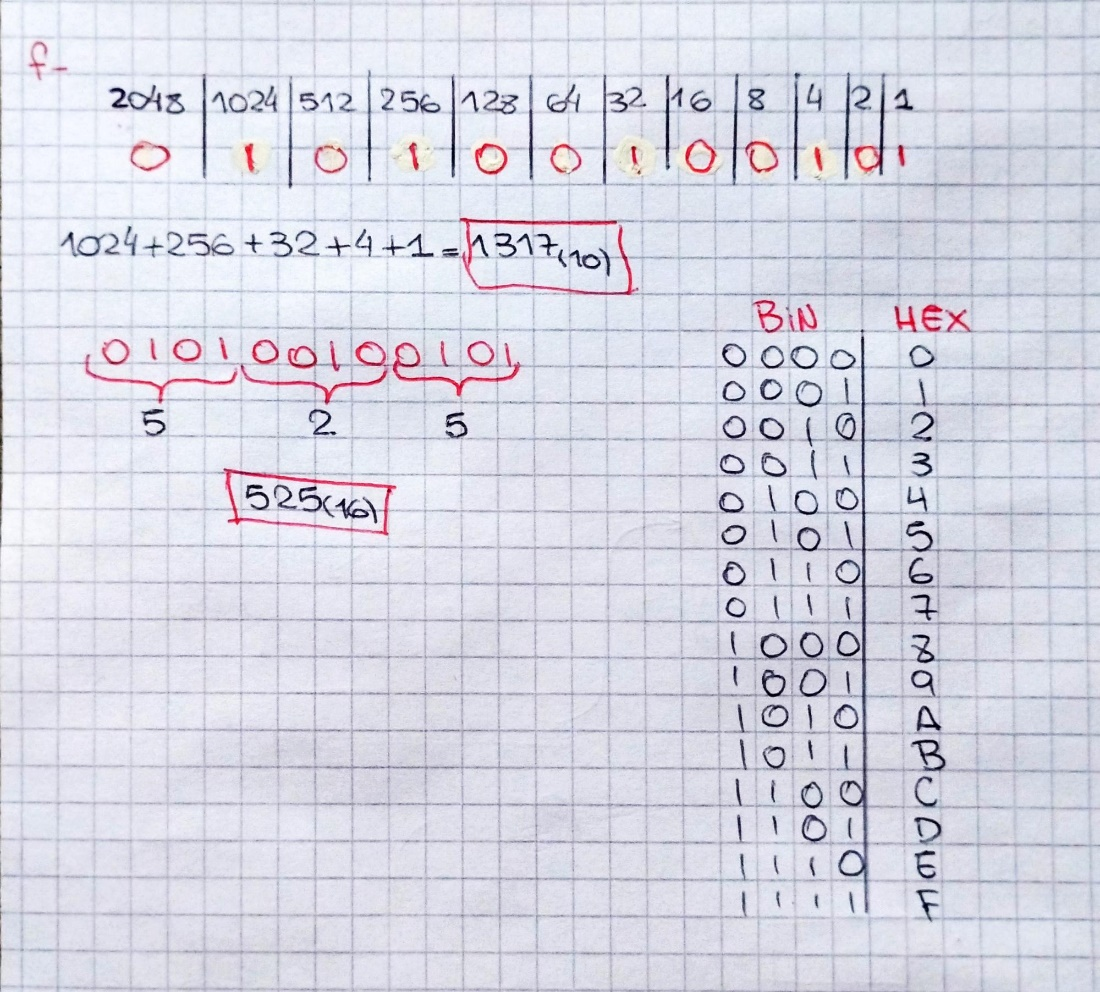 f-
2048 | 1024 | 512 | 256 | 128 | 64 | 32 | 16 | 8 | 4 | 2 | 1
0 | 1 | 0 | 1 | 0 | 0 | 1 | 0 | 0 | 1 | 0 | 1
1024+256+32+4+1=1317(10)
0101 0010 0101
5 2. 5
525(16)
BiN HEX
0000 | 0
0001 | 1
0010 | 2
0011 | 3
0100 | 4
0101 | 5
0110 | 6
0111 | 7
1000 | 8
1001 | 9
1010 | A
1011 | B
1100 | C
1101 | D
1110 | E
1111 | F